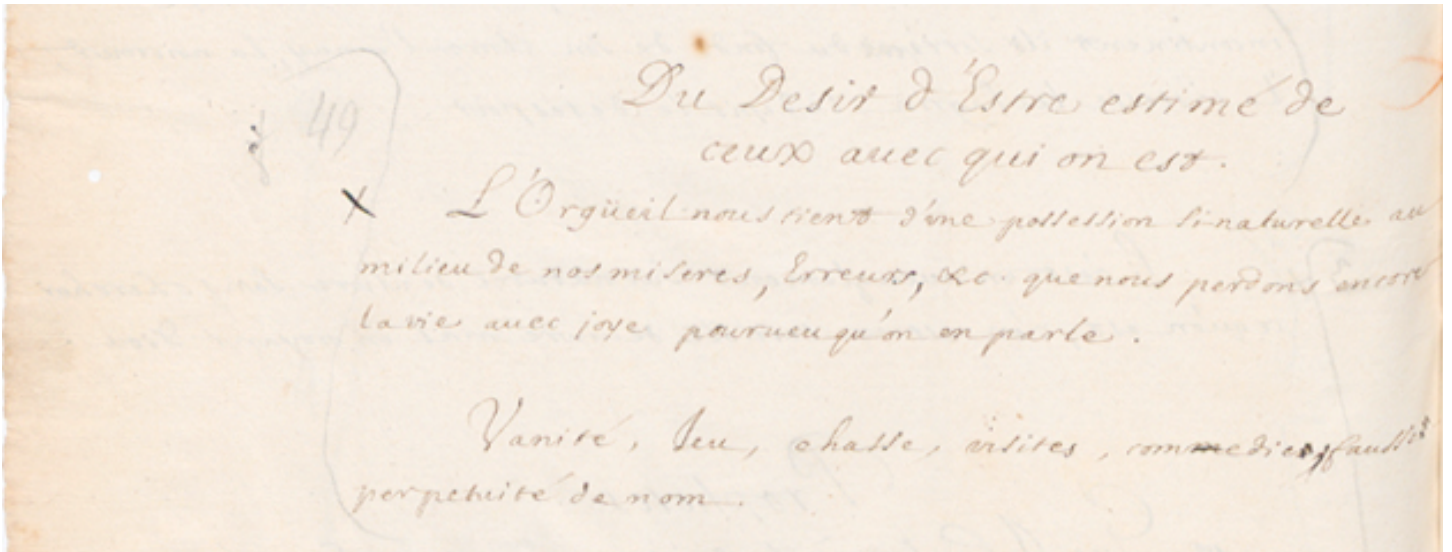 49
Du Desir d'Estre estimé de
ceux auec qui on est.
X L'Orgüeil nous tient d'vne possession si naturelle au
milieu de nos miseres, Erreurs, &c. que nous perdons encore
la vie auec joye pourueu qu'on en parle.
Vanité, Jeu, chasse, visites, commedies, fausse
perpetuité de nom.